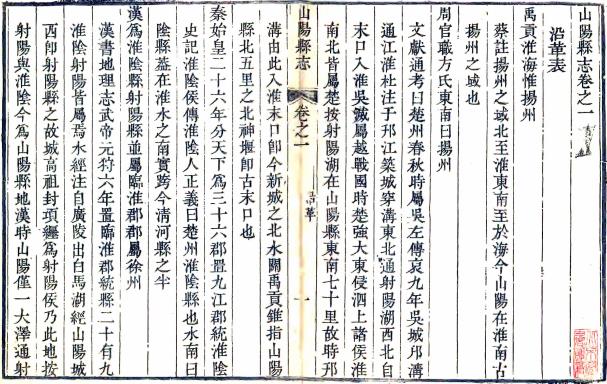 山陽縣志卷之一
沿革表
禹貢淮海惟揚州
蔡註揚州之域北至淮東南至於海今山陽在淮南古
揚州之域也
周官職方氏東南曰揚州
文獻通考曰楚州春秋時屬吳左傳哀九年吳城邗溝
通江淮杜注于邗江築城穿溝東北通射陽湖西北自
末口入淮吳滅屬越戰國時楚強大東侵泗上諸侯淮
南北皆屬楚按射陽湖在山陽縣東南七十里故時邗
山陽縣志 卷之一 沿革 一
溝由此入淮末口即今新城之北水關禹貢錐指山陽
縣北五里之北神堰即古末口也
秦始皇二十六年分天下爲三十六郡置九江郡統淮陰
史記淮陰侯傳淮陰人正義曰楚州淮陰縣也水南曰
陰縣蓋在淮水之南實跨今清河縣之半
漢爲淮陰縣射陽縣並屬臨淮郡郡屬徐州
漢書地理志武帝元狩六年置臨淮郡統縣二十有九
淮陰射陽皆屬焉水經注自廣陵出白馬湖經山陽城
西即射陽縣之故城高祖封項纏爲射陽侯乃此地按
射陽與淮陰今爲山陽縣地漢時山陽僅一大澤通射